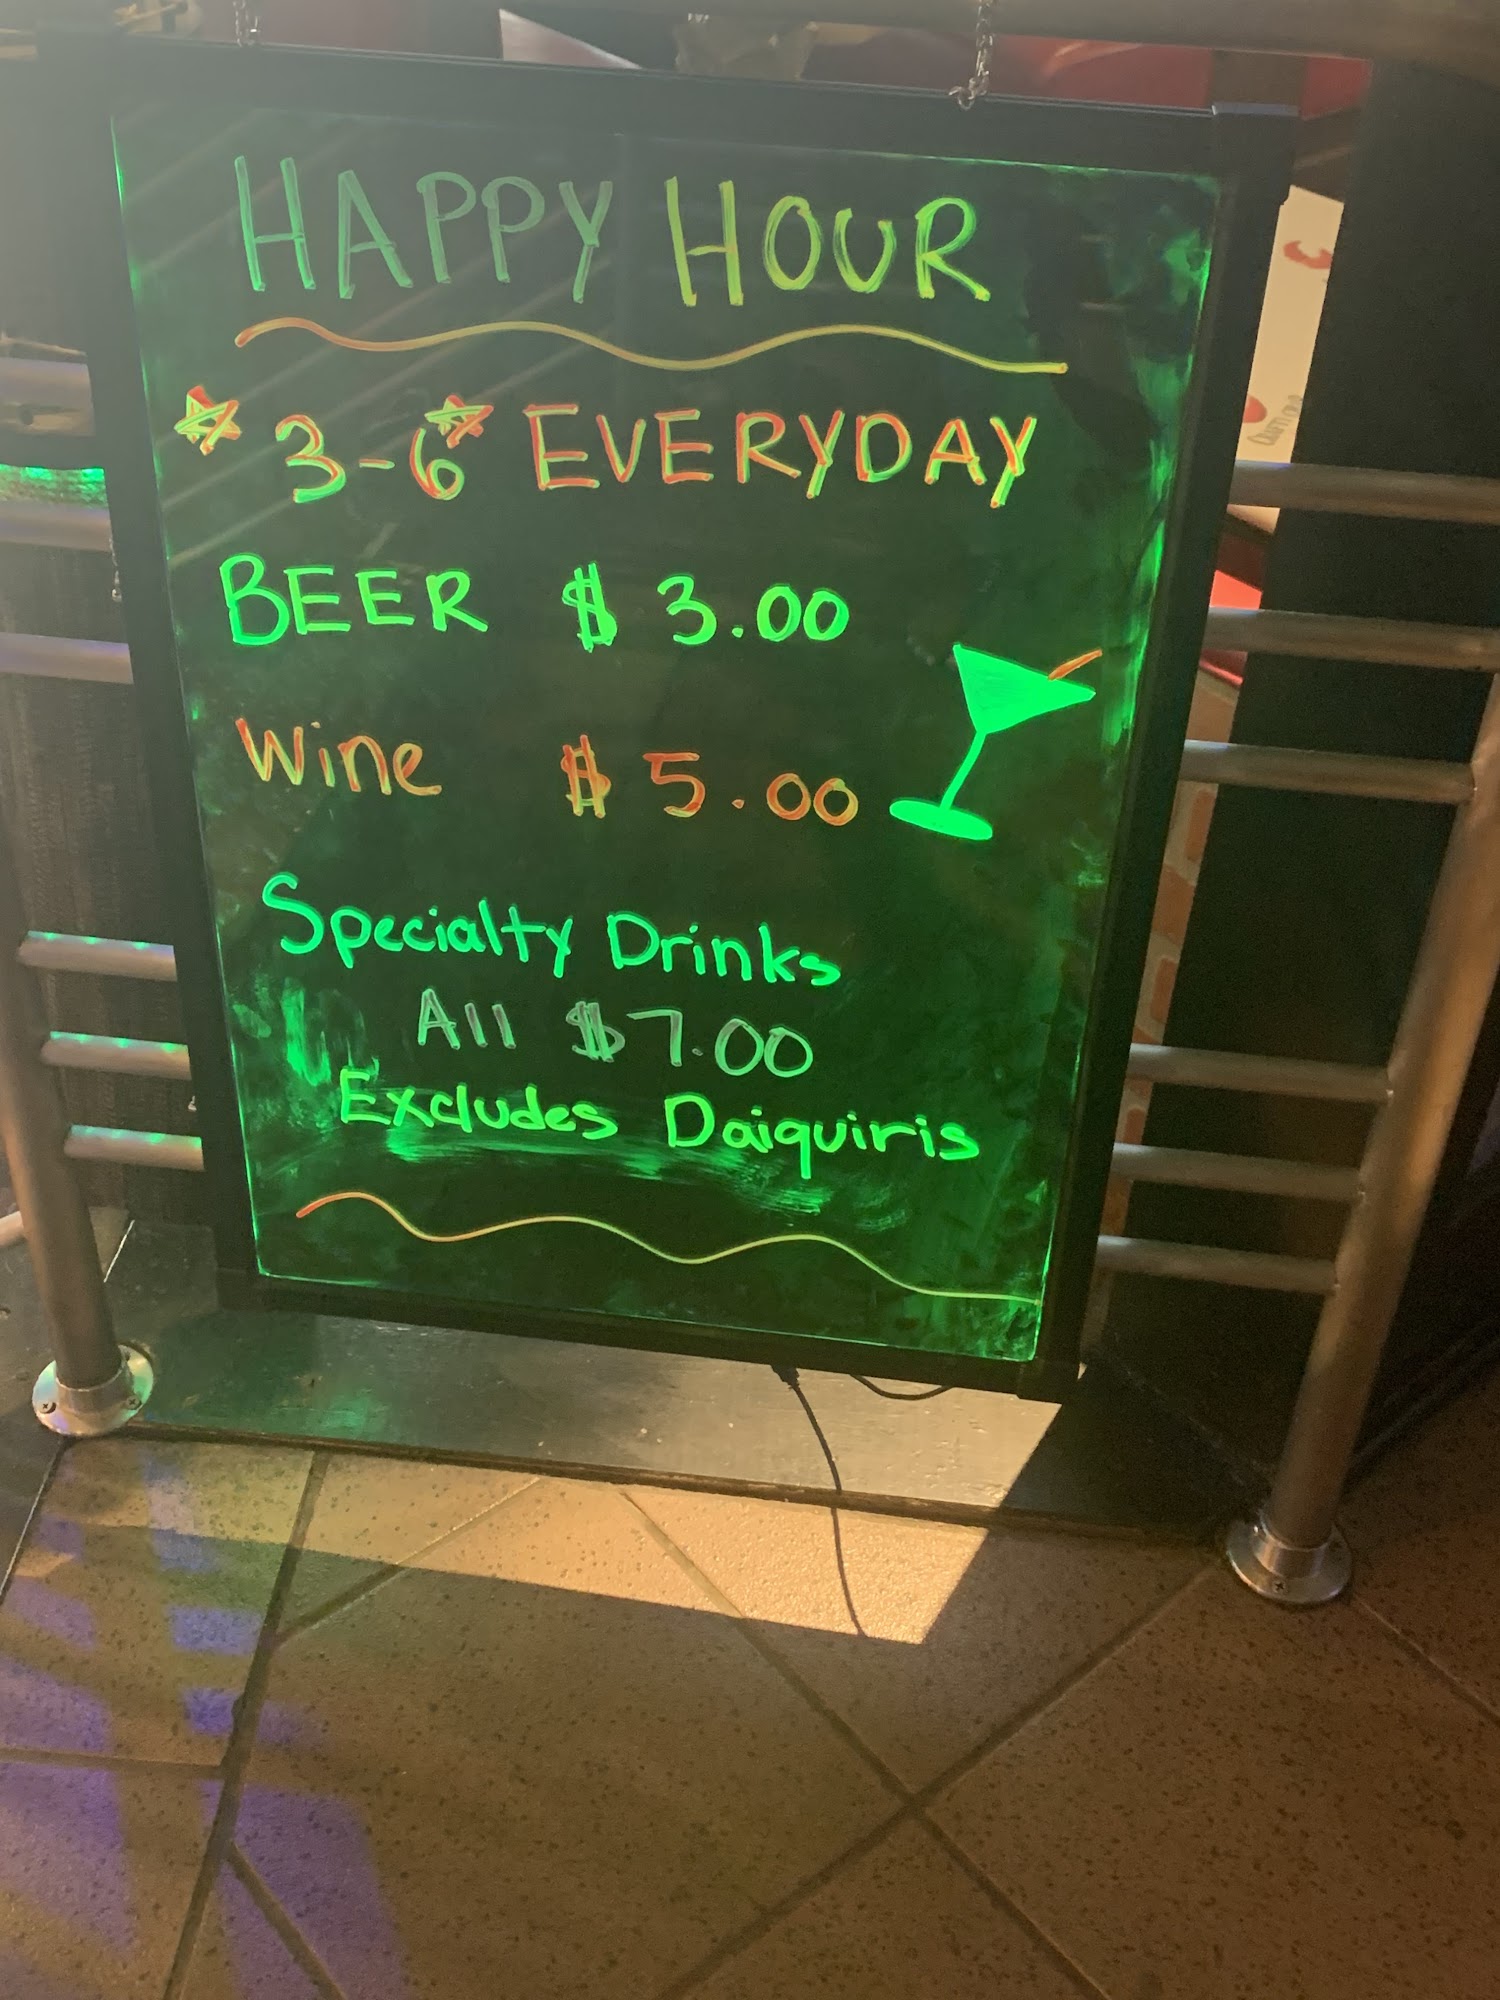 HAPPY HOUR
3-6 EVERYDAY
BEER $ 3.00
Wine $ 5.00
Specialty Drinks
All $7.00
Excludes Daiquiris